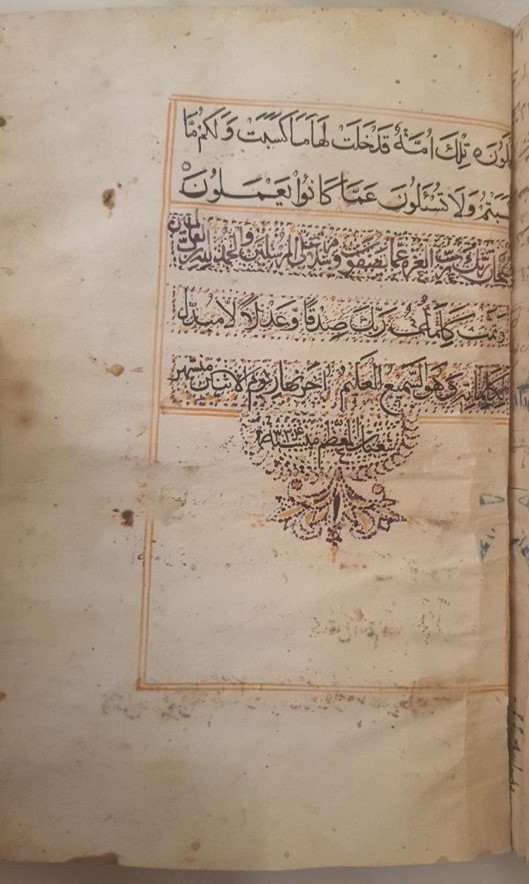 تِلْكَ اُمَّةٌ قَدْ خَلَتْ لَهَا مَا كَسَبَتْ وَلَكُمْ مَّا
وَلَا تُسْئَلُونَ عَمَّا كَانُوا يَعْمَلُونَ
رَبِّكَ رَبِّ العزة عما يصفون وسلام على المرسلين والحمد لله رب العالمين
وتمت كلمت رَبِّكَ صِدْقًا وَعَدْلًا لَا مُبَدِّلَ
لكلماته وَهُوَ السَّمِيعُ الْعَلِيمُ اخر نهار يوم الاثنين من شهر
شعبان المعظم سنة